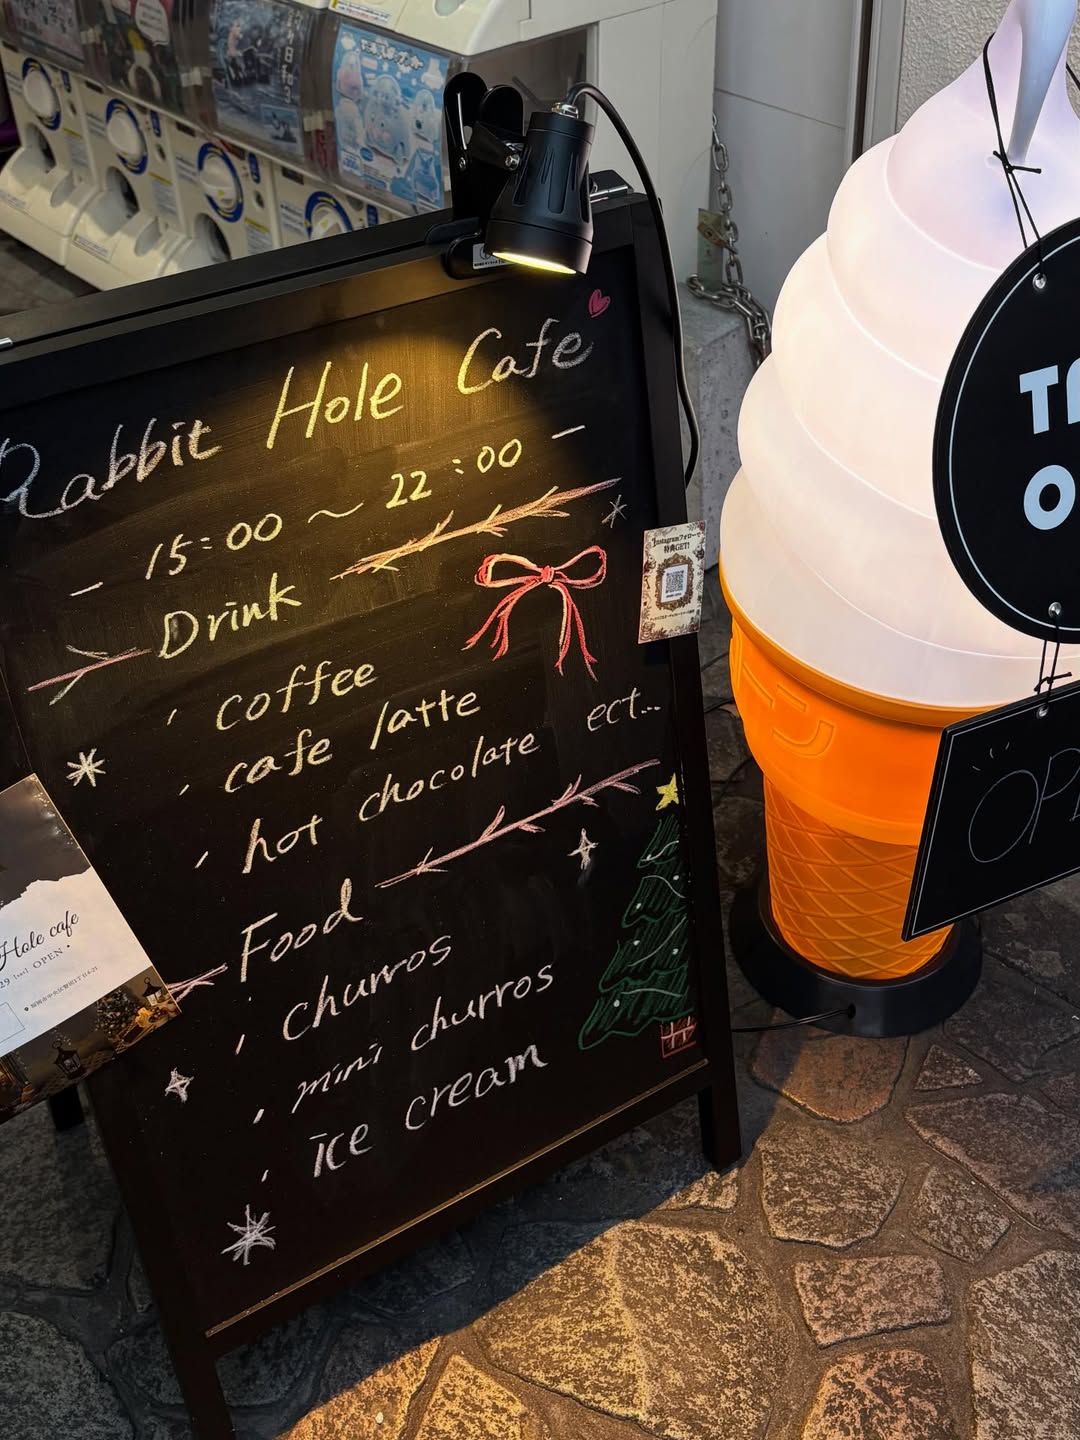 Rabbit Hole Cafe
— 15:00 ～ 22:00 —
Drink
coffee
cafe latte
hot chocolate ect...
Food
churros
mini churros
ice cream
Instagramフォローで
特典GET!
Hole cafe
OPEN